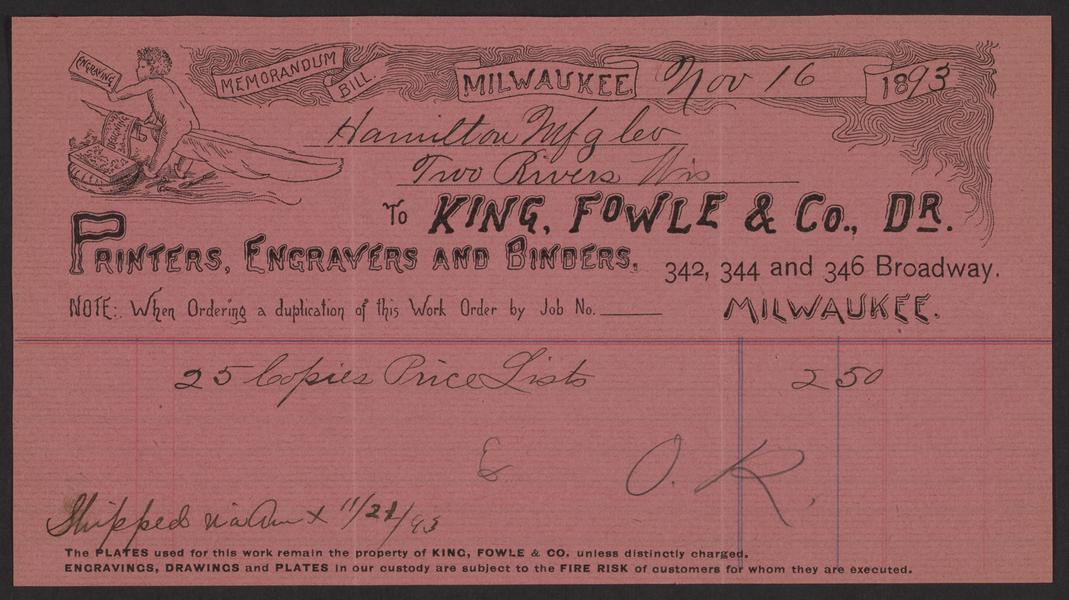 ENGRAVING
MEMORANDUM
BILL.
MILWAUKEE, Nov 16 1893
Hamilton Mfg Co
Two Rivers Wis
To KING, FOWLE & Co., DR.
PRINTERS, ENGRAVERS AND BINDERS,
342, 344 and 346 Broadway.
NOTE: When Ordering a duplication of this Work Order by Job No.
MILWAUKEE.
25 Copies Price Lists 2 50
O. K.
Shipped via Am x 11/21/93
The PLATES used for this work remain the property of KING, FOWLE & CO. unless distinctly charged.
ENGRAVINGS, DRAWINGS and PLATES in our custody are subject to the FIRE RISK of customers for whom they are executed.